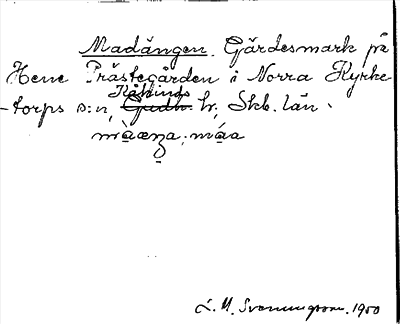 Madängen. Gärdesmark på
Hene Prästegården i Norra Kyrke
-torps s:n, Gudh. Kåkinds hr, Skb. län.
L. M. Svenungsson. 1900